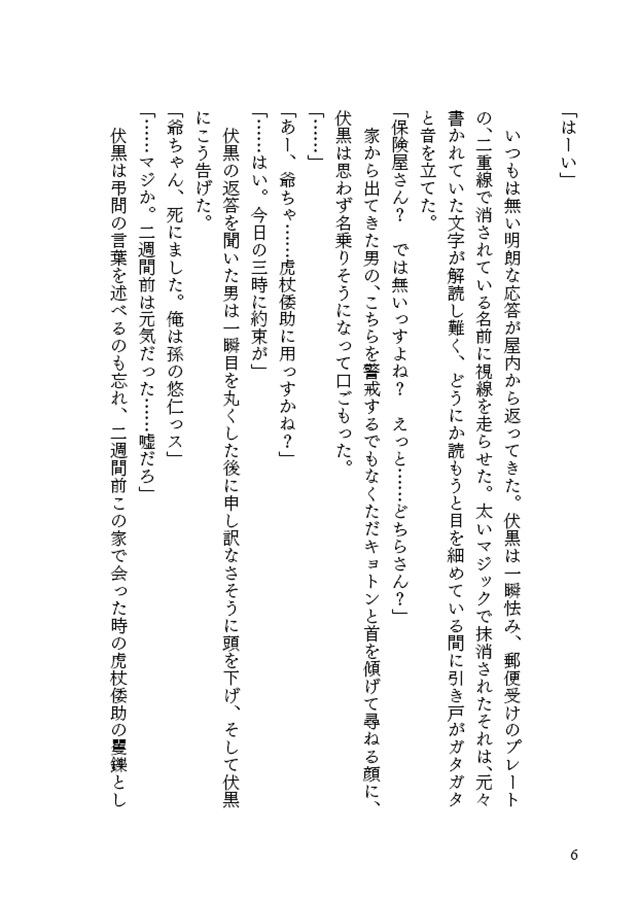 「はーい」
　いつもは無い明朗な応答が屋内から返ってきた。伏黒は一瞬怯み、郵便受けのプレート
の、二重線で消されている名前に視線を走らせた。太いマジックで抹消されたそれは、元々
書かれていた文字が解読し難く、どうにか読もうと目を細めている間に引き戸がガタガタ
と音を立てた。
「保険屋さん？　では無いっすよね？　えっと……どちらさん？」
　家から出てきた男の、こちらを警戒するでもなくただキョトンと首を傾げて尋ねる顔に、
伏黒は思わず名乗りそうになって口ごもった。
「……」
「あー、爺ちゃ……虎杖倭助に用っすかね？」
「……はい。今日の三時に約束が」
　伏黒の返答を聞いた男は一瞬目を丸くした後に申し訳なさそうに頭を下げ、そして伏黒
にこう告げた。
「爺ちゃん、死にました。俺は孫の悠仁っス」
「……マジか。二週間前は元気だった……嘘だろ」
　伏黒は弔問の言葉を述べるのも忘れ、二週間前この家で会った時の虎杖倭助の矍鑠とし
6